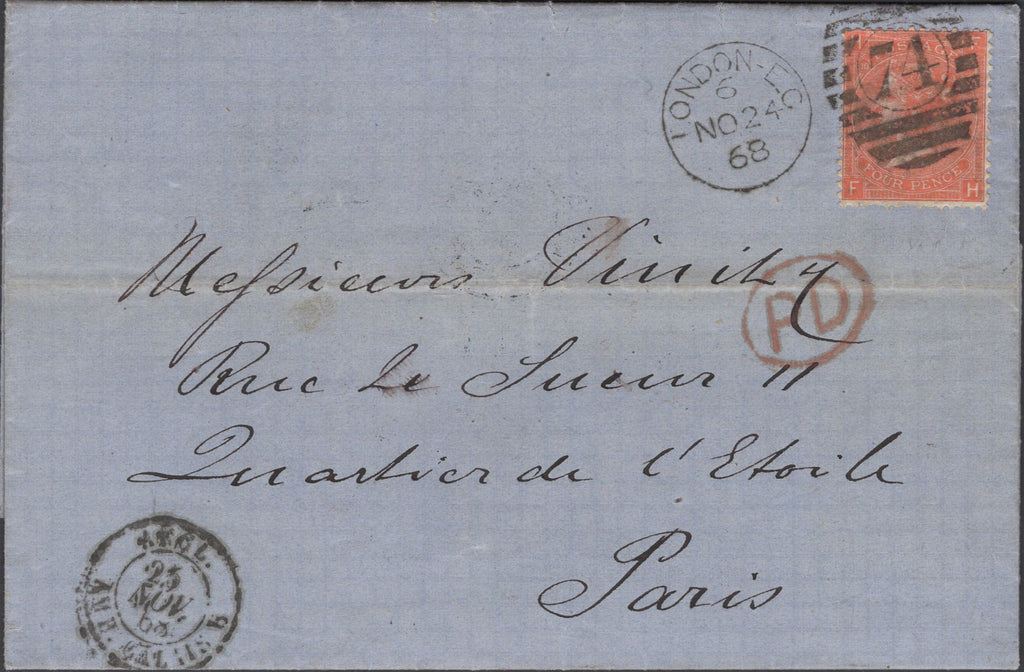 LONDON-E.C
6
NO 24
68
74
POSTAGE
FOUR PENCE
F H
Messieurs
PD
Rue Le Sueur 11
Quartier de l'Etoile
Paris
ANGL.
25
NOV.
68
AMB. CALAIS